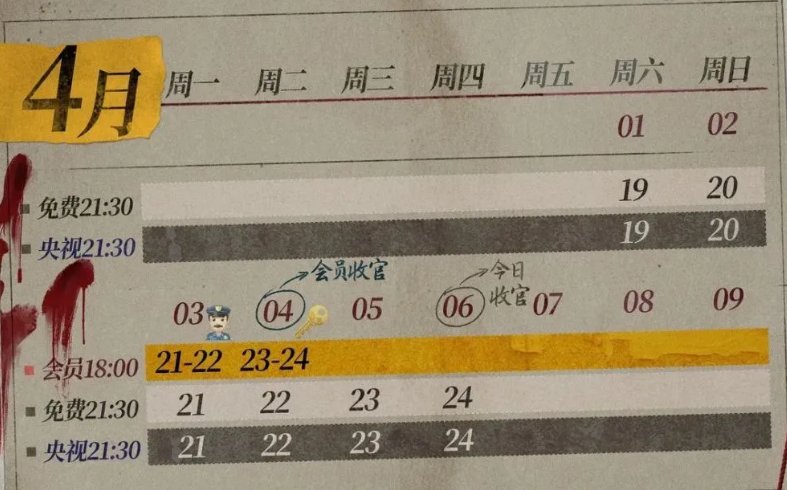 4月 周一 周二 周三 周四 周五 周六 周日
01 02
免费21:30 19 20
央视21:30 19 20
会员收官 今日
收官
03 04 05 06 07 08 09
会员18:00 21-22 23-24
免费21:30 21 22 23 24
央视21:30 21 22 23 24